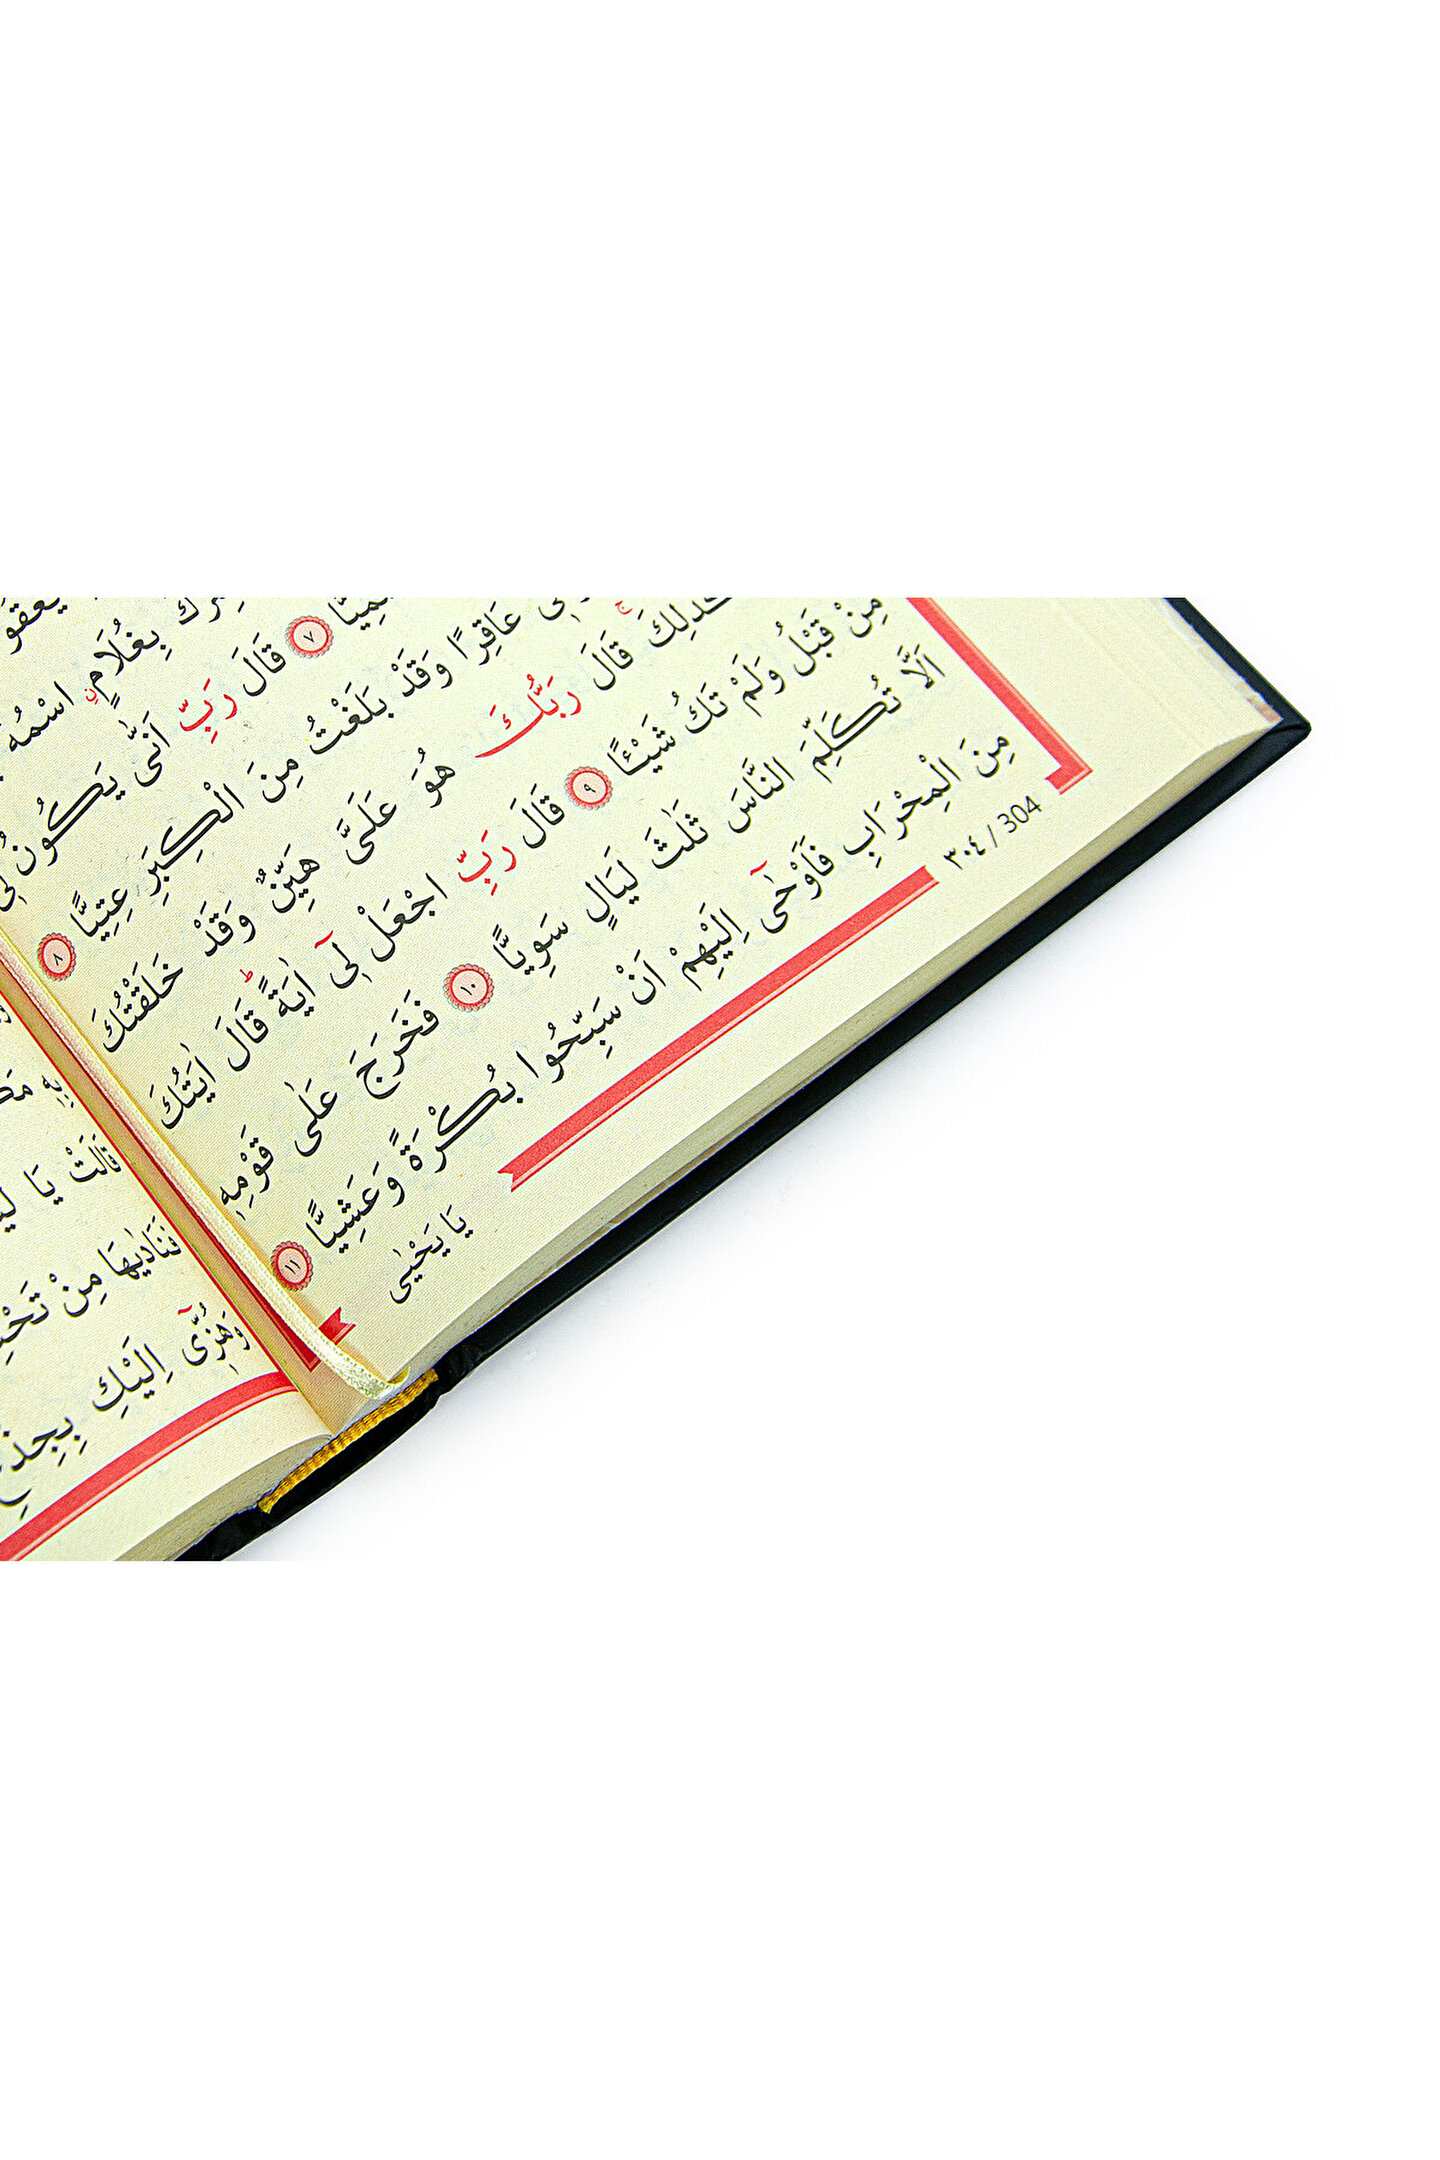 بِغُلَامٍ اسْمُهُ
٧ قَالَ رَبِّ اَنّٰى يَكُونُ لٖى
عَاقِرًا وَقَدْ بَلَغْتُ مِنَ الْكِبَرِ عِتِيًّا ٨
كَذٰلِكَ قَالَ رَبُّكَ هُوَ عَلَىَّ هَيِّنٌ وَقَدْ خَلَقْتُكَ
مِنْ قَبْلُ وَلَمْ تَكُ شَيْـًٔا ٩ قَالَ رَبِّ اجْعَلْ لٖٓى اٰيَةًؕ قَالَ اٰيَتُكَ
اَلَّا تُكَلِّمَ النَّاسَ ثَلٰثَ لَيَالٍ سَوِيًّا ١٠ فَخَرَجَ عَلٰى قَوْمِهٖ
مِنَ الْمِحْرَابِ فَاَوْحٰٓى اِلَيْهِمْ اَنْ سَبِّحُوا بُكْرَةً وَعَشِيًّا ١١
٣٠٤ / 304
يَا يَحْيٰى
بِهٖ
قَالَتْ يَا
فَنَادٰيهَا مِنْ
وَهُزّٖٓى اِلَيْكِ بِجِذْعِ